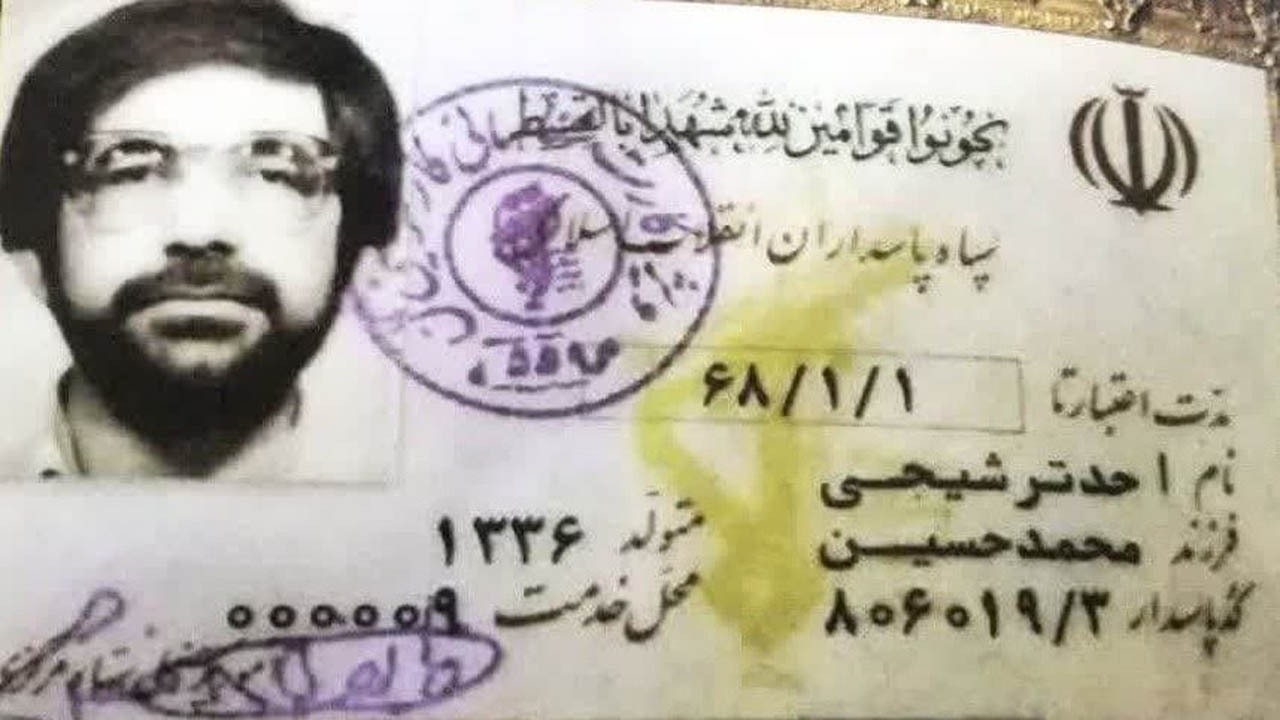 کونوا قوامین لله شهدا بالقسط
سپاه پاسداران انقلاب اسلامی
مدت اعتبار تا ۶۸/۱/۱
نام احد ترشیجی
فرزند محمدحسین متولد ۱۳۳۶
کد پاسدار ۸۰۶۰۱۹/۳ محل خدمت ۰۰۰۰۰۹